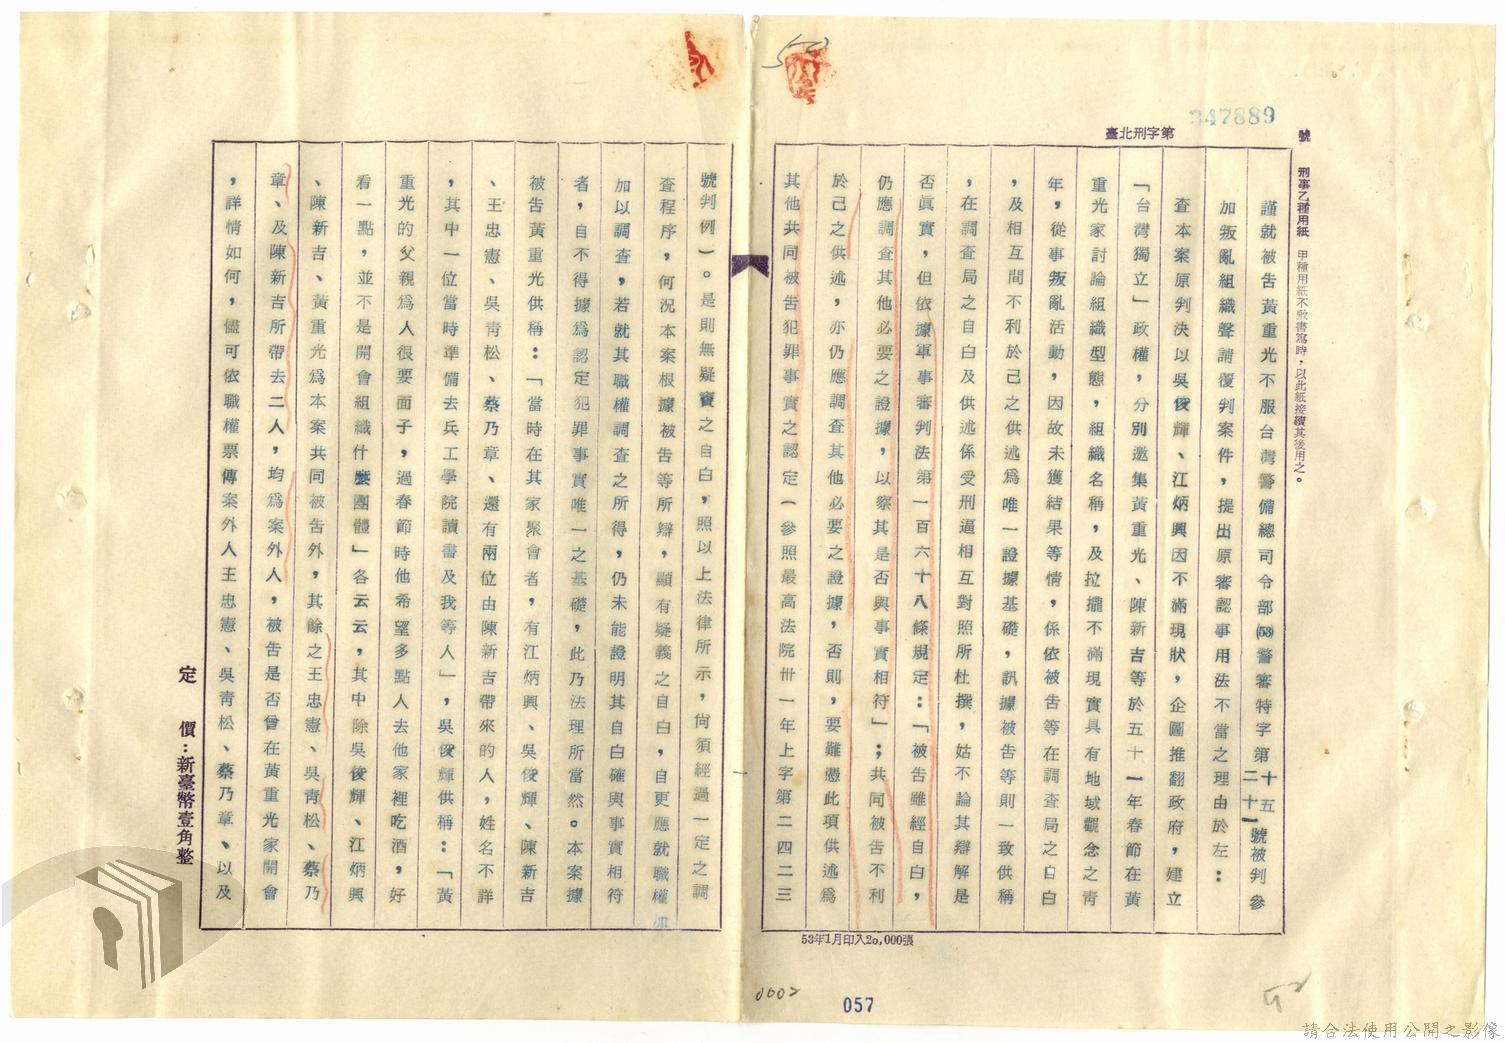 347889
臺北刑字第
號
刑事乙種用紙　甲種用紙不敷書寫時，以此紙接續其後用之。
謹就被告黃重光不服台灣警備總司令部(53)警審特字第十五二十一號被判參
加叛亂組織聲請覆判案件，提出原審認事用法不當之理由於左：
查本案原判決以吳俊輝、江炳興因不滿現狀，企圖推翻政府，建立
「台灣獨立」政權，分別邀集黃重光、陳新吉等於五十一年春節在黃
重光家討論組織型態，組織名稱，及拉攏不滿現實具有地域觀念之青
年，從事叛亂活動，因故未獲結果等情，係依被告等在調查局之自白
，及相互間不利於己之供述為唯一證據基礎，訊據被告等則一致供稱
，在調查局之自白及供述係受刑逼相互對照所杜撰，姑不論其辯解是
否眞實，但依據軍事審判法第一百六十八條規定：「被告雖經自白，
仍應調查其他必要之證據，以察其是否與事實相符」；共同被告不利
於己之供述，亦仍應調查其他必要之證據，否則，要難憑此項供述為
其他共同被告犯罪事實之認定（參照最高法院卅一年上字第二四二三
號判例）。是則無疑竇之自白，照以上法律所示，尙須經過一定之調
查程序，何況本案根據被告等所辯，顯有疑義之自白，自更應就職權加
加以調查，若就其職權調查之所得，仍未能證明其自白確與事實相符
者，自不得據為認定犯罪事實唯一之基礎，此乃法理所當然。本案據
被告黃重光供稱：「當時在其家聚會者，有江炳興、吳俊輝、陳新吉
、王忠憲、吳青松、蔡乃章、還有兩位由陳新吉帶來的人，姓名不詳
，其中一位當時準備去兵工學院讀書及我等人」，吳俊輝供稱：「黃
重光的父親為人很要面子，過春節時他希望多點人去他家裡吃酒，好
看一點，並不是開會組織什麼團體」各云云，其中除吳俊輝、江炳興
、陳新吉、黃重光為本案共同被告外，其餘之王忠憲、吳青松、蔡乃
章、及陳新吉所帶去二人，均為案外人，被告是否曾在黃重光家開會
，詳情如何，儘可依職權票傳案外人王忠憲、吳青松、蔡乃章、以及
定　價：新臺幣壹角整
53年1月印入20,000張
0002
057
52
請合法使用公開之影像